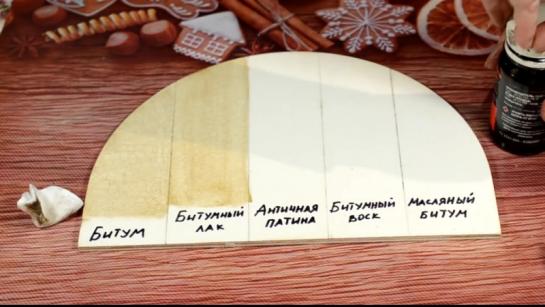 Битум
Битумный
лак
Античная
патина
Битумный
воск
Масляный
битум